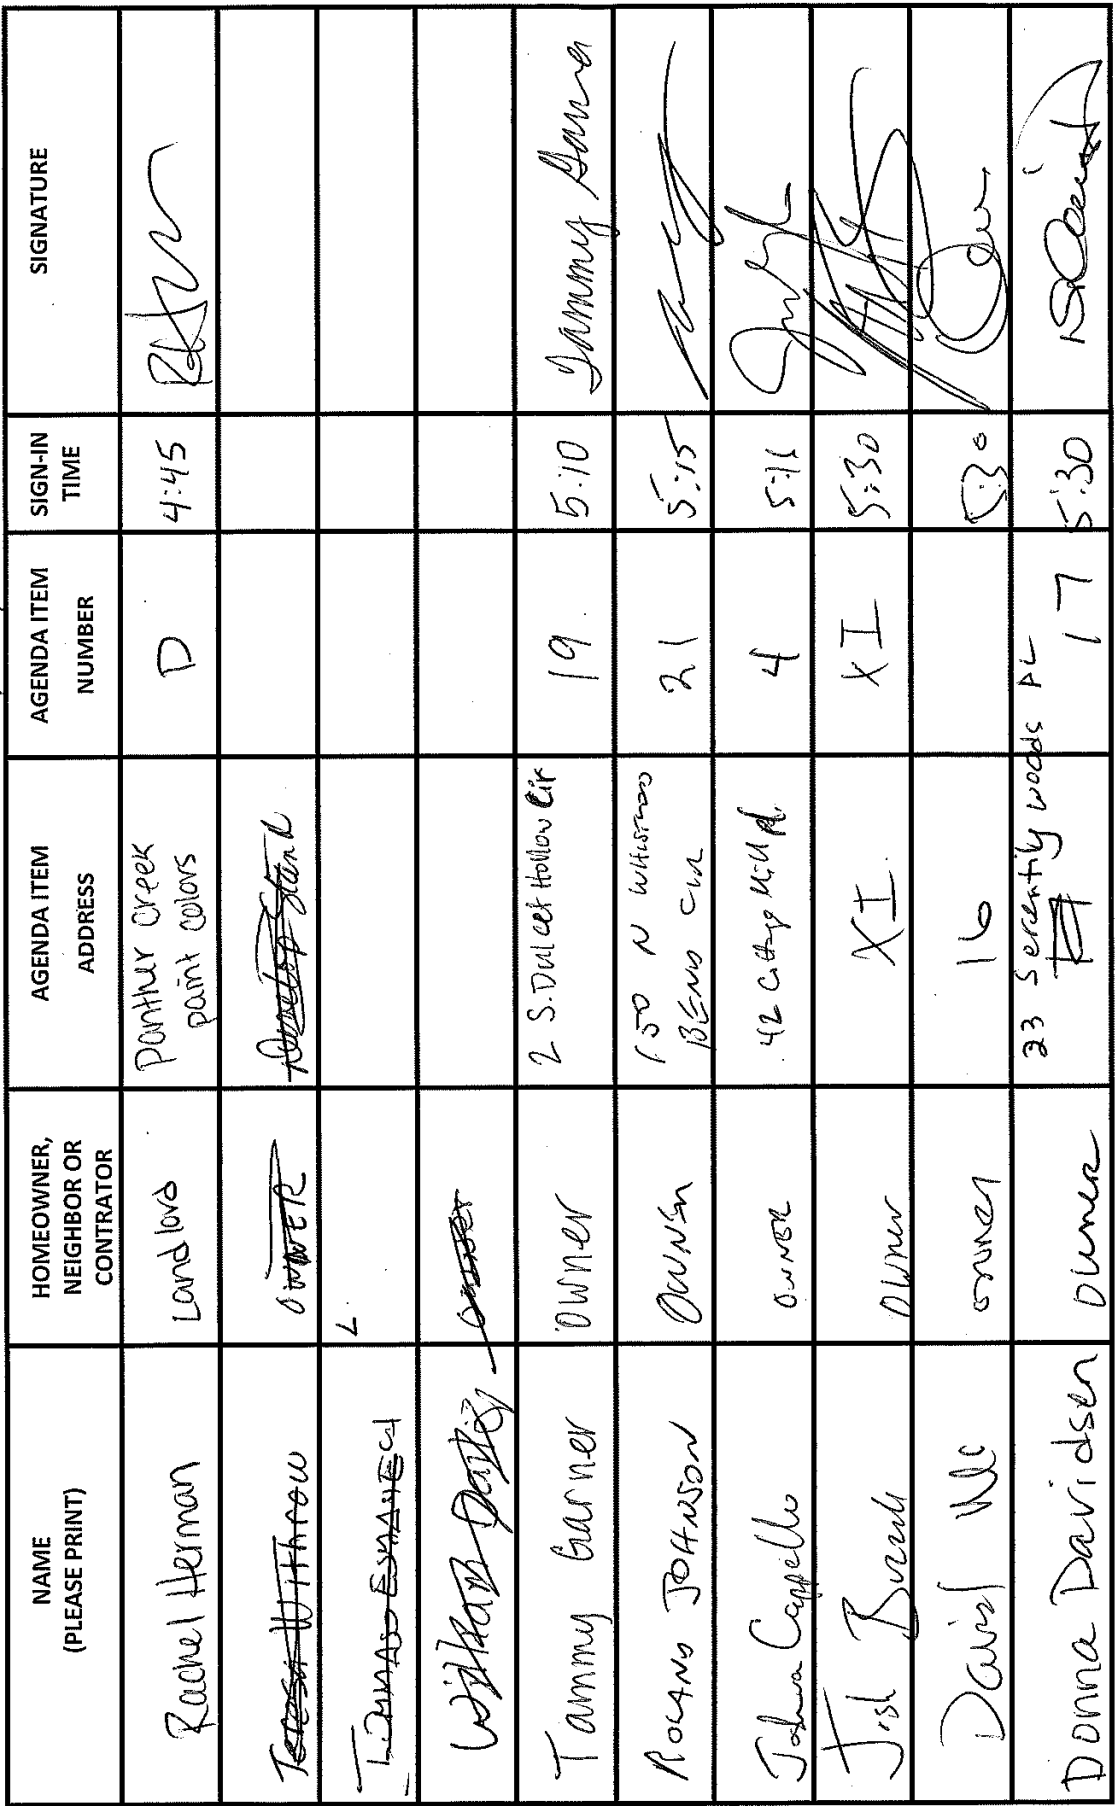 NAME
(PLEASE PRINT)
HOMEOWNER,
NEIGHBOR OR
CONTRATOR
AGENDA ITEM
ADDRESS
AGENDA ITEM
NUMBER
SIGN-IN
TIME
SIGNATURE
Rachel Herman Landlord Panthur Creek D 4:45
paint colors
Teresa Withrow OWNER
William owner
Tammy Garner owner 2 S. Dulcet Hollow Cir 19 5:10 Tammy Garner
ROLAND JOHNSON OWNER 150 N WHISTLING 21 5:15
BEND CIR
Joshua Cappello OWNER 42 Cottage Mill Pl. 4 5:16
Josh owner XI XI 5:30
David owner 16
Donna Davidsen owner 23 Serentily woods PL 17 5:30
17